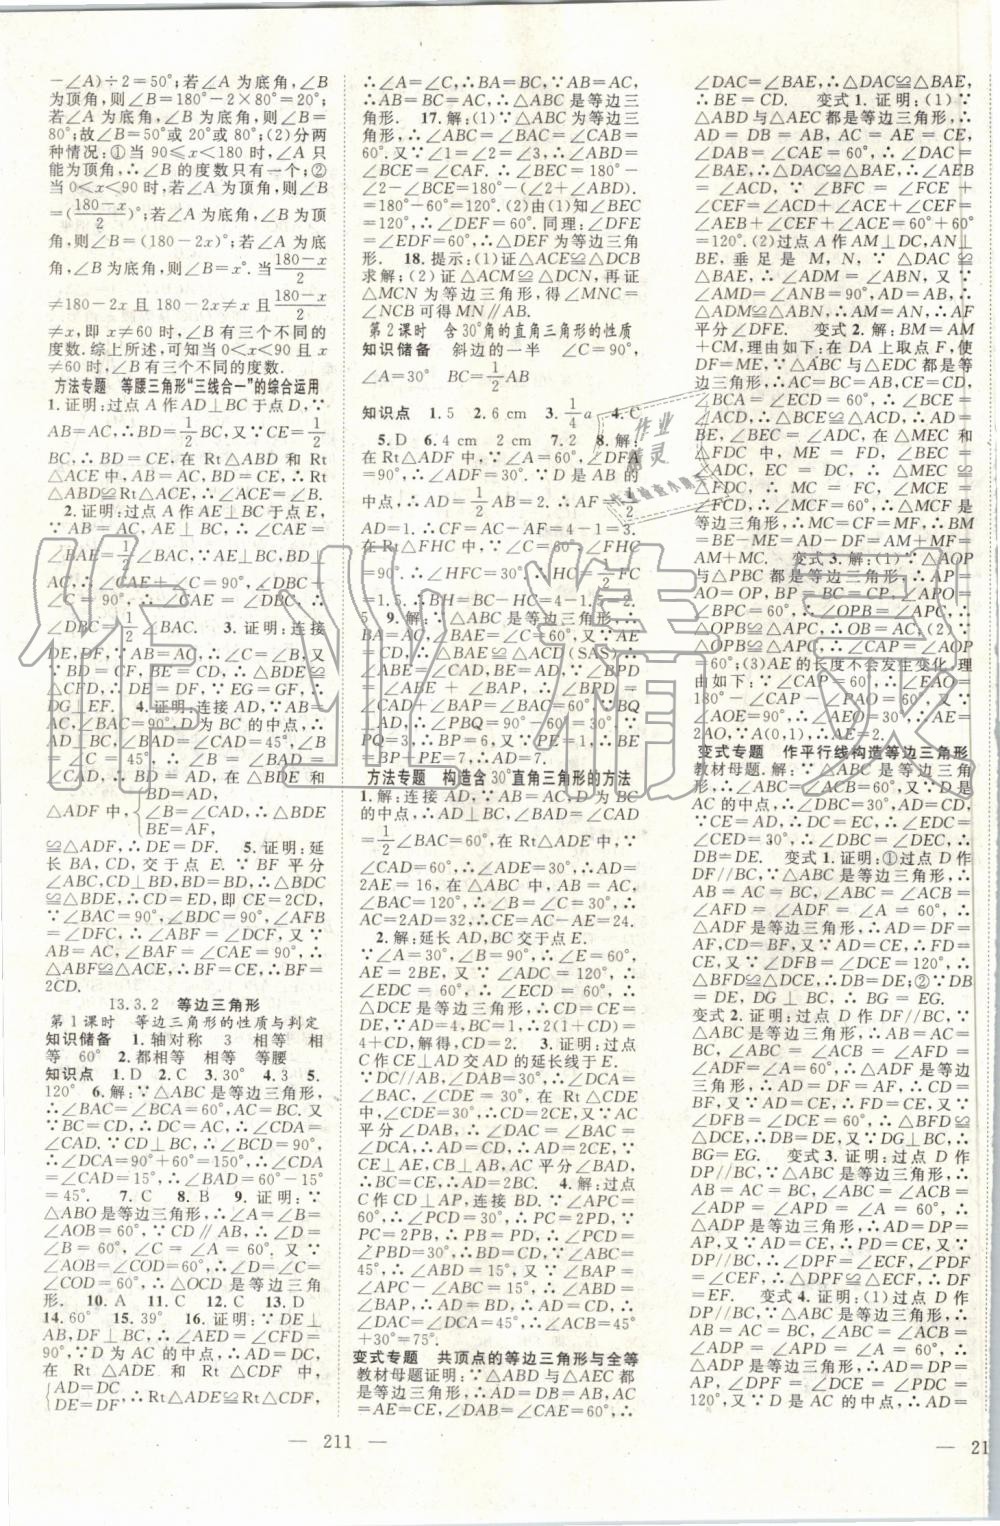 －∠A)÷2＝50°;若∠A 为底角,∠B
为顶角,则∠B＝180°－2×80°＝20°;
若∠A 为底角,∠B 为底角,则∠B＝
80°;故∠B＝50°或 20°或 80°;(2)分两
种情况:①当 90≤x＜180 时,∠A 只
能为顶角,∴∠B 的度数只有一个;②
当 0＜x＜90 时,若∠A 为顶角,则∠B
＝(180－x/2)°;若∠A 为底角,∠B 为顶
角,则∠B＝(180－2x)°;若∠A 为底
角,∠B 为底角,则∠B＝x°.当180－x/2
≠180－2x 且 180－2x≠x 且180－x/2
≠x,即 x≠60 时,∠B 有三个不同的
度数.综上所述,可知当 0＜x＜90 且 x
≠60 时,∠B 有三个不同的度数.
方法专题 等腰三角形“三线合一”的综合运用
1.证明:过点 A 作 AD⊥BC 于点 D,∵
AB＝AC,∴BD＝1/2BC,∵CE＝1/2
BC,∴BD＝CE,在 Rt△ABD 和 Rt
△ACE 中,
△ABD≌Rt△ACE,∴AC 平分∠BAE.
2.证明:过点A作AE⊥BC于点E,
∵AB＝AC,AE⊥BC,∴∠CAE＝
∠BAE＝1/2
AC,∴∠CAE＋∠C＝90°,∠DBC＋
∠C＝90°,∴∠CAE＝∠DBC,∴
∠DBC＝1/2∠BAC. 3.证明:连接
DE,DF,
4.证明:连接 AD,∵AB＝
AC,∠BAC＝90°,D 为 BC 的中点,∴
∠BAD＝∠B＝∠CAD＝45°,∠B＝
∠C＝45°,
△ADF 中,{AD＝BD, ∠B＝∠CAD, ∴△BDE BE＝AF,
≌△ADF,∴DE＝DF. 5.证明:延
长 BA,CD,交于点 E.∵BF 平分
∠ABC,BD⊥CD,∴△BDC
≌△BDE,∴CD＝ED,即 CE＝2CD,
∵∠BAC＝90°,∠BDC＝90°,∠AFB
＝∠DFC,∴∠ABF＝∠DCF,又∵
AB＝AC,∠BAF＝∠CAE＝90°,∴
△ABF≌△ACE,∴BF＝CE,∴BF＝
2CD.
13.3.2 等边三角形
第 1 课时 等边三角形的性质与判定
知识储备 1.轴对称 3 相等 相
等 60° 2.都相等 相等 等腰
知识点 1.D 2.C 3.30° 4.3 5.
120° 6.解:∵△ABC 是等边三角形,
∴∠BAC＝∠BCA＝60°,AC＝BC.又
∵BC＝CD,∴DC＝AC,∴∠CDA＝
∠CAD.∵BC⊥CD,∴∠BCD＝90°,∴
∠DCA＝90°＋60°＝150°,∴∠CDA
＝∠CAD＝15°,∴∠BAD＝60°－15°
＝45°. 7.C 8.B 9.证明:∵
△ABO是等边三角形,∴∠A＝∠B＝
∠AOB＝60°.又∵CD∥AB,∴∠D
＝∠B＝60°,∠C＝∠A＝60°.又∵
∠AOB＝∠COD＝60°,∴∠D＝∠C＝
∠COD＝60°,∴△OCD 是等边三角
形. 10.A 11.C 12.C 13.D
14.60° 15.39° 16.证明:∵DE⊥
AB,DF⊥BC,∴∠AED＝∠CFD＝
90°,∵D 为 AC 的中点,∴AD＝DC,
在 Rt △ADE 和 Rt △CDF 中,
{AD＝DC DE＝DF,∴Rt△ADE≌Rt△CDF,
∴∠A＝∠C,∴BA＝BC.∵AB＝AC,
∴AB＝BC＝AC,∴△ABC 是等边三
角形. 17.解:(1)∵△ABC 为等边三
角形,∴∠ABC＝∠BAC＝∠BCA＝
60°.又∵∠1＝∠2＝∠3,∴∠ABD＝
∠BCE＝∠CAF.∴∠BEC＝180°－
∠2－∠BCE＝180°－(∠2＋∠ABD)
＝180°－60°＝120°.(2)由(1)知∠BEC＝
120°,∴∠DEF＝60°.同理:∠DFE
＝∠EDF＝60°,∴△DEF 为等边三角
形. 18.提示:(1)证△ACE≌△DCB
求解;(2)证△ACM≌△DCN,再证
△MCN 为等边三角形,得∠MNC＝
∠NCB 可得 MN∥AB.
第 2 课时 含30°角的直角三角形的性质
知识储备 斜边的一半 ∠C＝90°,
∠A＝30° BC＝1/2AB
知识点 1.5 2.6 cm 3.1/4a 4.C
5.D 6.4 cm 2 cm 7.2 8.解:
在 Rt△ADF 中,∵∠A＝60°,∠DFA
＝90°,∴∠ADF＝30°.∵D 是 AB 的
中点,∴AD＝1/2AB＝2.∴AF＝1/2
AD＝1.∴CF＝AC－AF＝4－1＝3.
在 Rt△FHC 中,∵∠C＝60°,∠FHC
＝90°,∴∠HFC＝30°,∴HC＝1/2FC
＝1.5,∴BH＝BC－HC＝4－1.5＝
9.解:∵△ABC是等边三角形,∴
BA＝AC,∠BAE＝∠C＝60°.又∵AE
＝CD,∴△ABE≌△CAD(SAS),∴
∠ABE＝∠CAD,BE＝AD,∵∠BPD
＝∠ABE＋∠BAP,∴∠BPD＝
∠CAD＋∠BAP＝∠BAC＝60°.∵BQ
⊥AD,∴∠PBQ＝90°－60°＝30°,∵
PQ＝3,∴BP＝6,又∵PE＝1,∴BE＝
BP＋PE＝7,∴AD＝BE＝7.
方法专题 构造含30°直角三角形的方法
1.解:连接 AD,∵AB＝AC,D 为 BC 的
中点,∴AD⊥BC,∠BAD＝∠CAD
＝1/2∠BAC＝60°,在 Rt△ADE 中,∵
∠CAD＝60°,∴∠ADE＝30°,∴AD＝
2AE＝16,在△ABC 中,AB＝AC,
∠BAC＝120°,∴∠C＝30°,∴AC＝
2AD＝32,∴CE＝AC－AE＝24.
2.解:延长 AD,BC 交于点 E.
∵∠A＝30°,∠B＝90°,∴∠E＝60°.
又∵∠ADC＝120°,∴∠EDC＝60°,∴
∠EDC＝∠ECD＝∠E＝60°,∴
△DCE 是等边三角形,设 CD＝CE＝
DE＝x,∵AD＝4,BC＝1,∴2(1＋x)＝
x＋4,解得,CD＝2. 3.证明:过点
C 作 CE⊥AD 交 AD 的延长线于 E.
∵DC∥AB,∠DAB＝30°,∴∠CDE
＝30°.∵CE⊥AE,∴在 Rt△CDE
中,∠CDE＝30°,∴CD＝2CE.又∵AC
平分∠DAB,∴∠DAC＝∠BAC＝
∠DCA,∴AD＝CD＝2CE.又∵
∠DAB＝∠B＝30°,AC 平分∠BAD,∴
BC＝2CE,∴AD＝BC. 4.解:过点
C 作 CD⊥AP,连接 BD.∵∠APC＝
60°,∴∠PCD＝30°,∴PC＝2PD,∵
PC＝2PB,∴BP＝PD,∴∠PDB＝
∠PBD＝30°.又∵∠BAP＝
∠APC－∠ABC＝15°,∴∠ABD＝
∠BAP,∴AD＝BD＝CD,又∵CD⊥
AP,∴∠DAC＝∠DCA＝45°,∴∠BAC＝45°
＋30°＝75°.
变式专题 共顶点的等边三角形与全等
教材母题证明:∵△ABD 与△AEC 都
是等边三角形,∴AD＝AB,AC＝AE,∠DAB＝∠EAC＝60°,∴
∠DAC＝∠BAE,∴△DAC≌△BAE,
∴BE＝CD. 变式 1.证明:(1)∵
△ABD 与△AEC 都是等边三角形,∴
AD＝DB＝AB,AC＝AE＝EC,
∠DAB＝∠CAE＝60°,∴∠DAC＝
∠BAE,∴△DAC≌△BAE,∴∠AEB
＝∠ACD,∵∠BFC＝∠FCE＋
∠CEF＝∠ACD＋∠ACE＋∠CEF＝
∠AEB＋∠CEF＋∠ACE＝60°＋60°
＝120°.(2)过点 A 作 AM⊥DC,AN⊥
BE,垂足是 M,N,∵△DAC≌△BAE,
∴∠ADM＝∠ABN,又∵
∠AMD＝∠ANB＝90°,AD＝AB,∴
△ADM≌△ABN,∴AM＝AN,∴AF
平分∠DFE. 变式 2.解:BM＝AM＋
CM,理由如下:在 DA 上取点 F,使
DF＝ME,
∠BAC＝∠DAE＝60°,∴∠BAE＝
∠DAC,
△DAC,∴∠AEB＝∠ADC,CD＝
BE,∠BEC＝∠ADC,∴△MEC 和
△FDC 中,
≌△FDC,∴MC＝CF,∴△MCF是等
边三角形,∴MC＝CF＝MF,∴BM＝
BE－ME＝AD－DF＝AF＝AM＋MF＝
AM＋MC. 变式 3.解:(1)∵△AOP
与△PBC 都是等边三角形,∴AP＝
AO＝OP,BP＝PC＝BC,∠APO＝
∠BPC＝60°,∴∠OPB＝∠APC,∴
△OPB≌△APC,∴OB＝AC;(2)∵
△OPB≌△APC,∴∠CAP＝∠AOP
＝60°;(3)AE的长度不会发生变化,理
由如下:∵∠CAP＝60°,∴∠EAO＝
180°－∠CAP－∠PAO＝60°,又∵
∠AOE＝90°,∴∠AEO＝30°,∴AE＝
2AO＝2.
变式专题 作平行线构造等边三角形
教材母题.解:∵△ABC为等边三角
形,∴∠ABC＝∠ACB＝60°,又∵D 是
AC 的中点,∴∠DBC＝30°.又∵CD＝
CE,∴∠CDE＝∠CED,又∵∠CDE＋
∠CED＝30°,∴∠DBC＝∠DEC,∴
DB＝DE. 变式 1.证明:①过点 D 作
DF//BC,∵△ABC为等边三角形,∴
∠A＝∠ABC＝∠ACB＝60°,∴
∠ADF＝∠AFD＝∠A＝60°,∴
△ADF 是等边三角形,∴AD＝DF＝
AF,CD＝BF,又∵AD＝CE,∴DF＝
CE,∵∠BFD＝∠DCE＝120°,∴
△BFD≌△DCE,∴DB＝DE;②∵DB
＝DE,DG⊥BC,∴BG＝EG.
变式 2.证明:过点 D 作 DF//BC,∵
△ABC 为等边三角形,∴∠BAC＝
∠ABC＝∠ACB＝∠AFD＝
∠ADF＝60°,∴△ADF 是等边三
角形,∴AD＝DF＝AF,∴CD＝
BF,又∵AD＝CE,∴FD＝CE,又∵
∠DFB＝∠DCE＝60°,∴△BFD
≌△DCE,∴DB＝DE,又∵DG⊥BC,∴
BG＝EG. 变式 3.证明:过点 D 作
DP//BC,∵△ABC 是等边三角形,∴
AB＝AC＝BC,∴∠B＝∠ACB＝
∠ADP＝∠APD＝∠A＝60°,∴
△ADP 是等边三角形,∴AD＝DP＝
AP,∵AD＝CE,∴DP＝CE,又∵
DP//BC,∴∠DPF＝∠ECF,∠PDF
＝∠CEF,∴△DPF≌△ECF,∴DF＝
EF. 变式 4.证明:(1)过点 D 作
DP//BC,∵△ABC 是等边三角形,∴
AB＝AC＝BC,∠B＝∠ACB＝
∠ADP＝∠APD＝∠A＝60°,∴
△ADP 是等边三角形,∴AD＝DP＝
AP,∴BD＝PC,∠DPC＝∠DBE＝
120°,又∵D 是 AC 的中点,∴AD＝
— 211 —
— 21
作业精灵